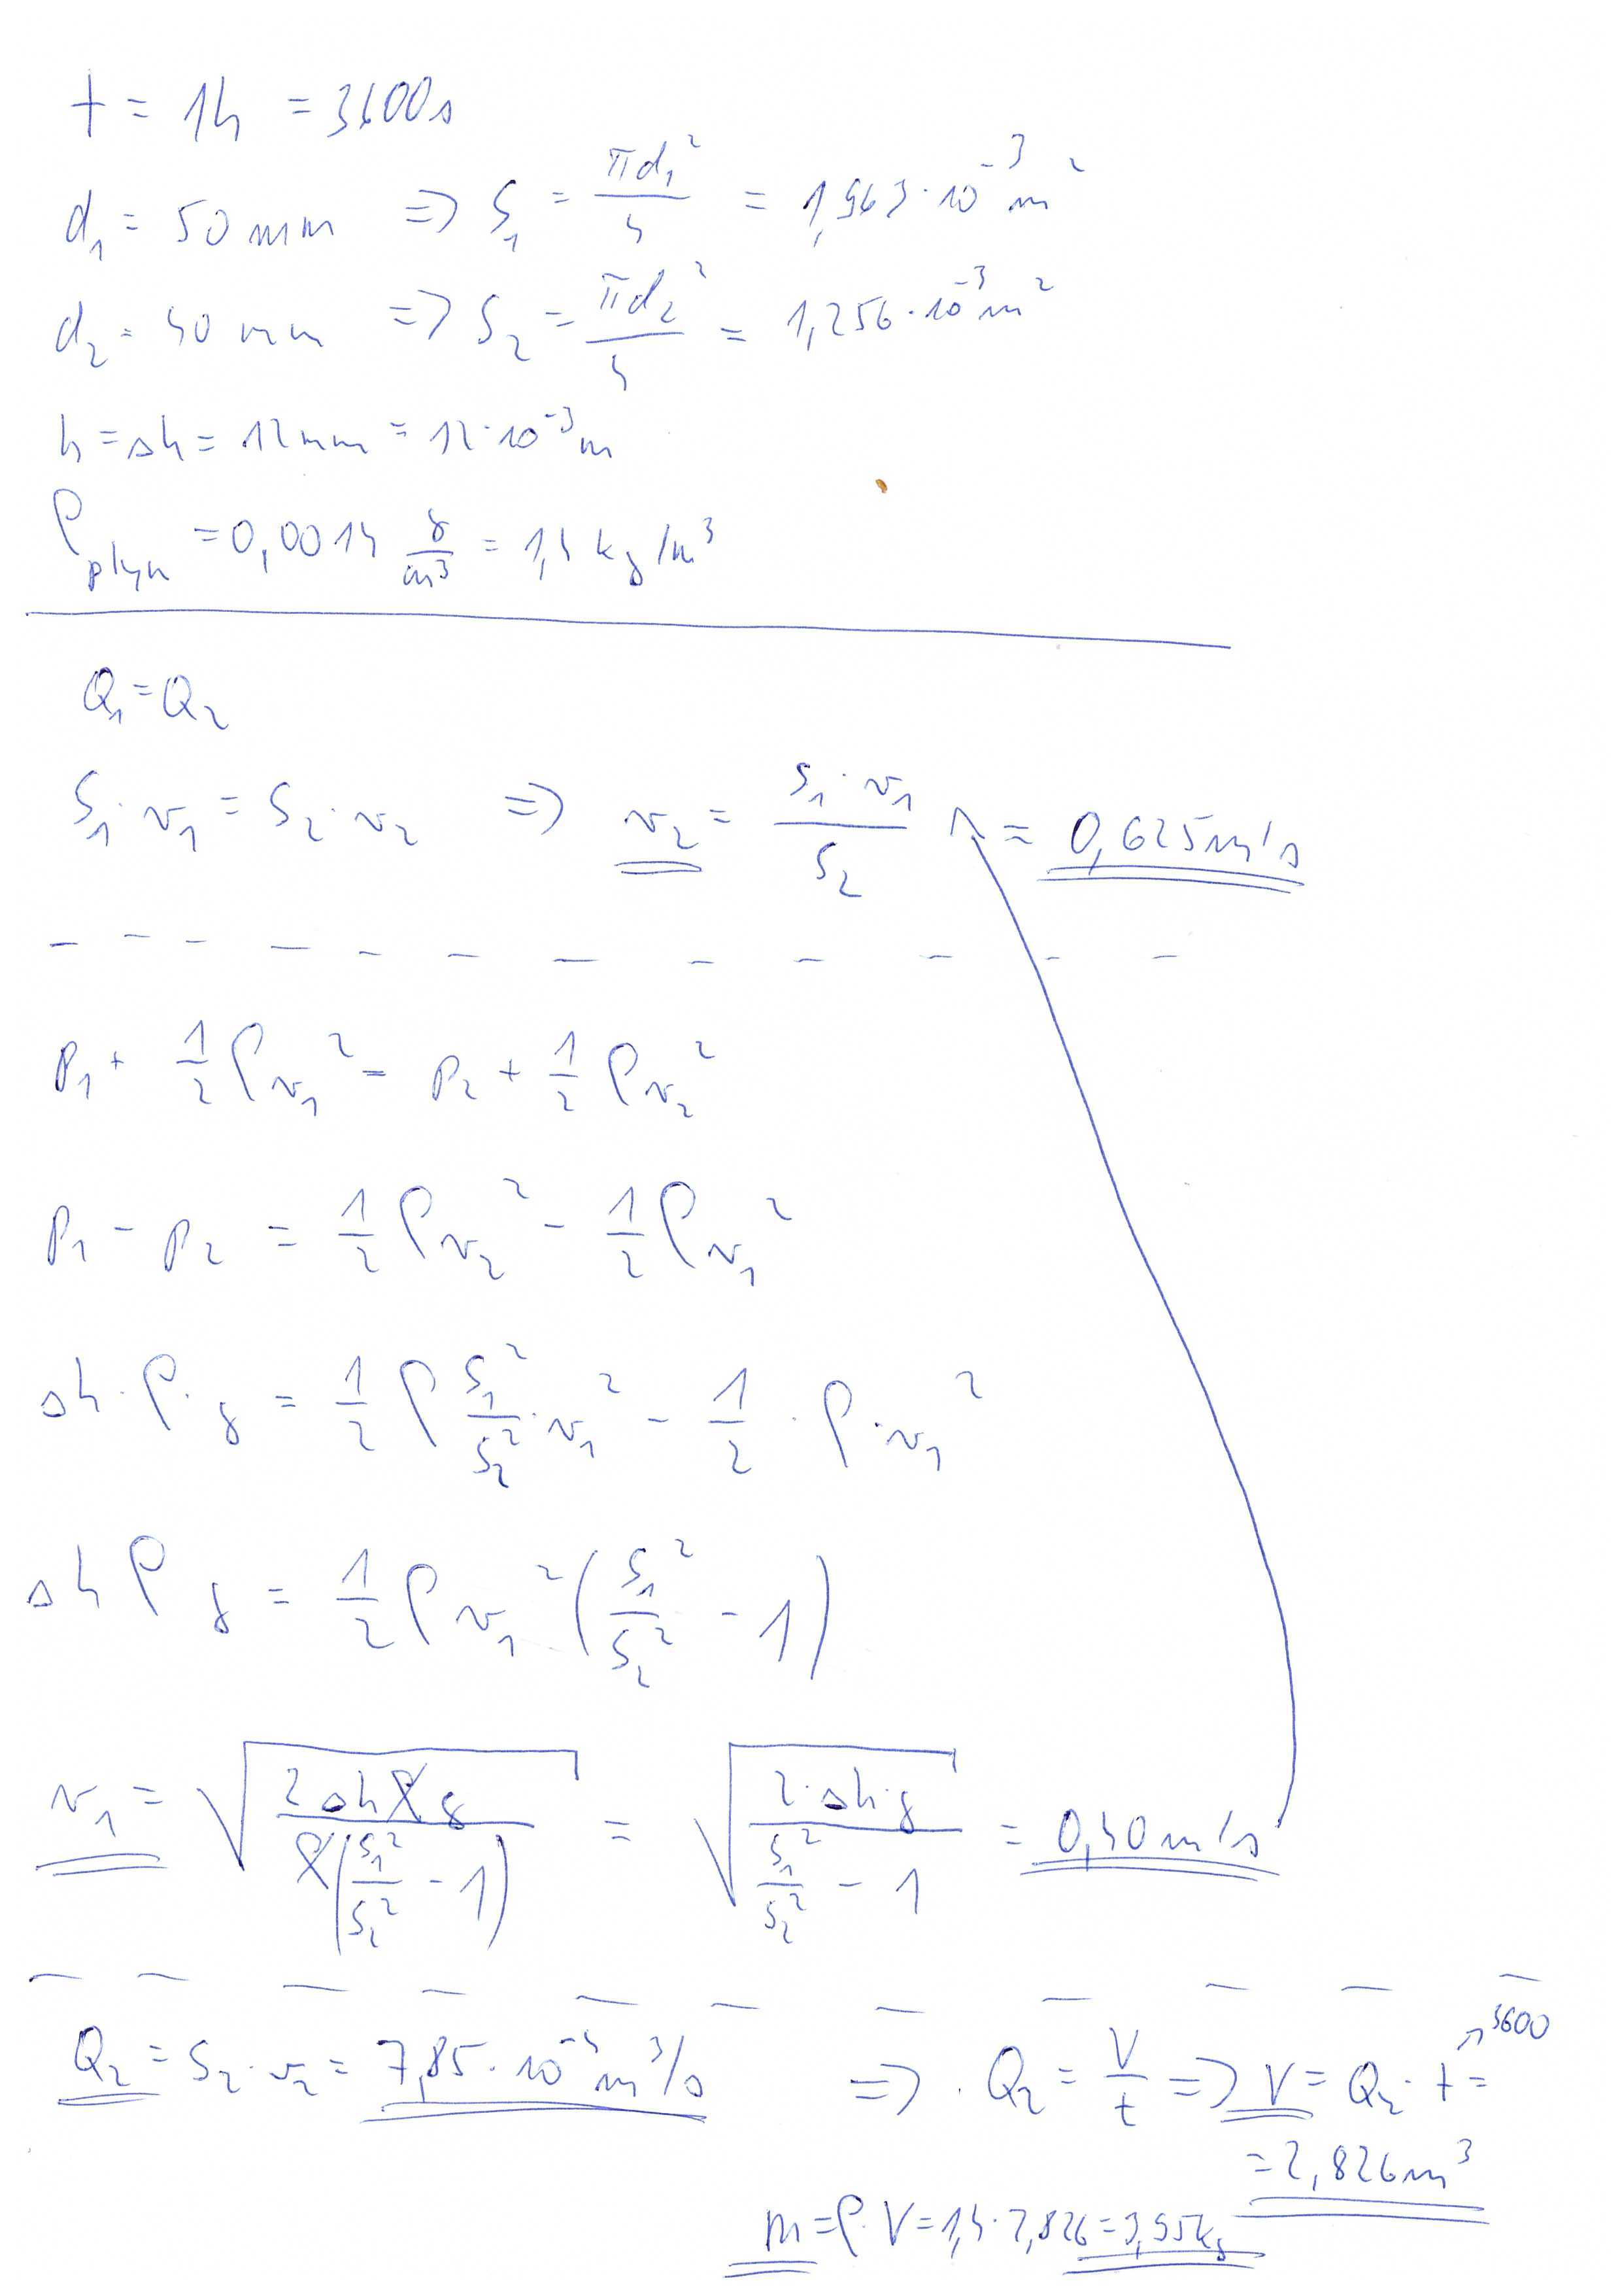 t = 1h = 3600s
d₁ = 50 mm => S₁ = πd₁²/4 = 1,963·10⁻³ m²
d₂ = 40 mm => S₂ = πd₂²/4 = 1,256·10⁻³ m²
h = Δh = 12mm = 12·10⁻³ m
ρplyn = 0,0014 g/cm³ = 1,4 kg/m³
Q₁ = Q₂
S₁·v₁ = S₂·v₂ => v₂ = S₁·v₁/S₂ = 0,625 m/s
p₁ + 1/2 ρv₁² = p₂ + 1/2 ρv₂²
p₁ - p₂ = 1/2 ρv₂² - 1/2 ρv₁²
Δh·ρ·g = 1/2 ρ S₁²/S₂²·v₁² - 1/2·ρ·v₁²
Δh ρ g = 1/2 ρ v₁² (S₁²/S₂² - 1)
v₁ = √(2Δhρg / ρ(S₁²/S₂² - 1)) = √(2·Δh·g / (S₁²/S₂² - 1)) = 0,40 m/s
Q₂ = S₂·v₂ = 7,85·10⁻⁴ m³/s => Q₂ = V/t => V = Q₂·t = 3600
= 2,826 m³
m = ρ·V = 1,4·2,826 = 3,95 kg